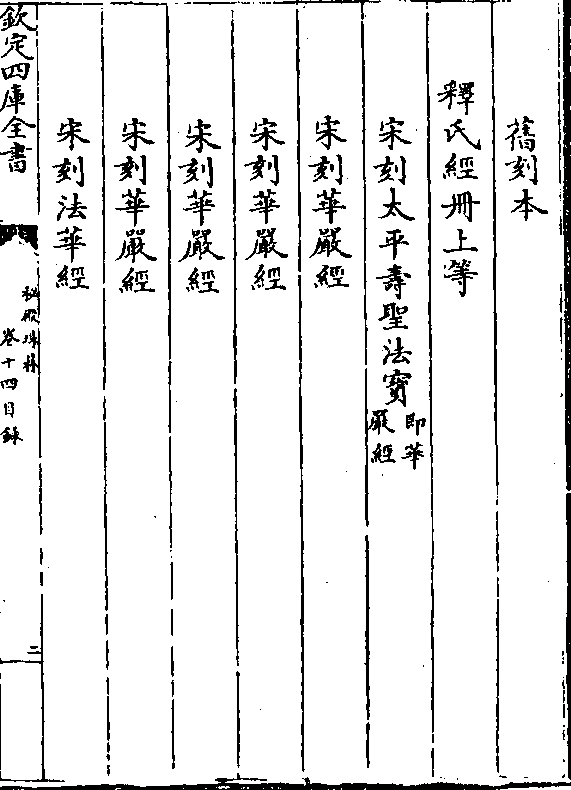 舊刻本
釋氏經冊上等
宋刻太平壽聖法寶即華嚴經
宋刻華嚴經
宋刻華嚴經
宋刻華嚴經
宋刻華嚴經
宋刻法華經
欽定四庫全書
秘殿珠林
卷十四目錄
二